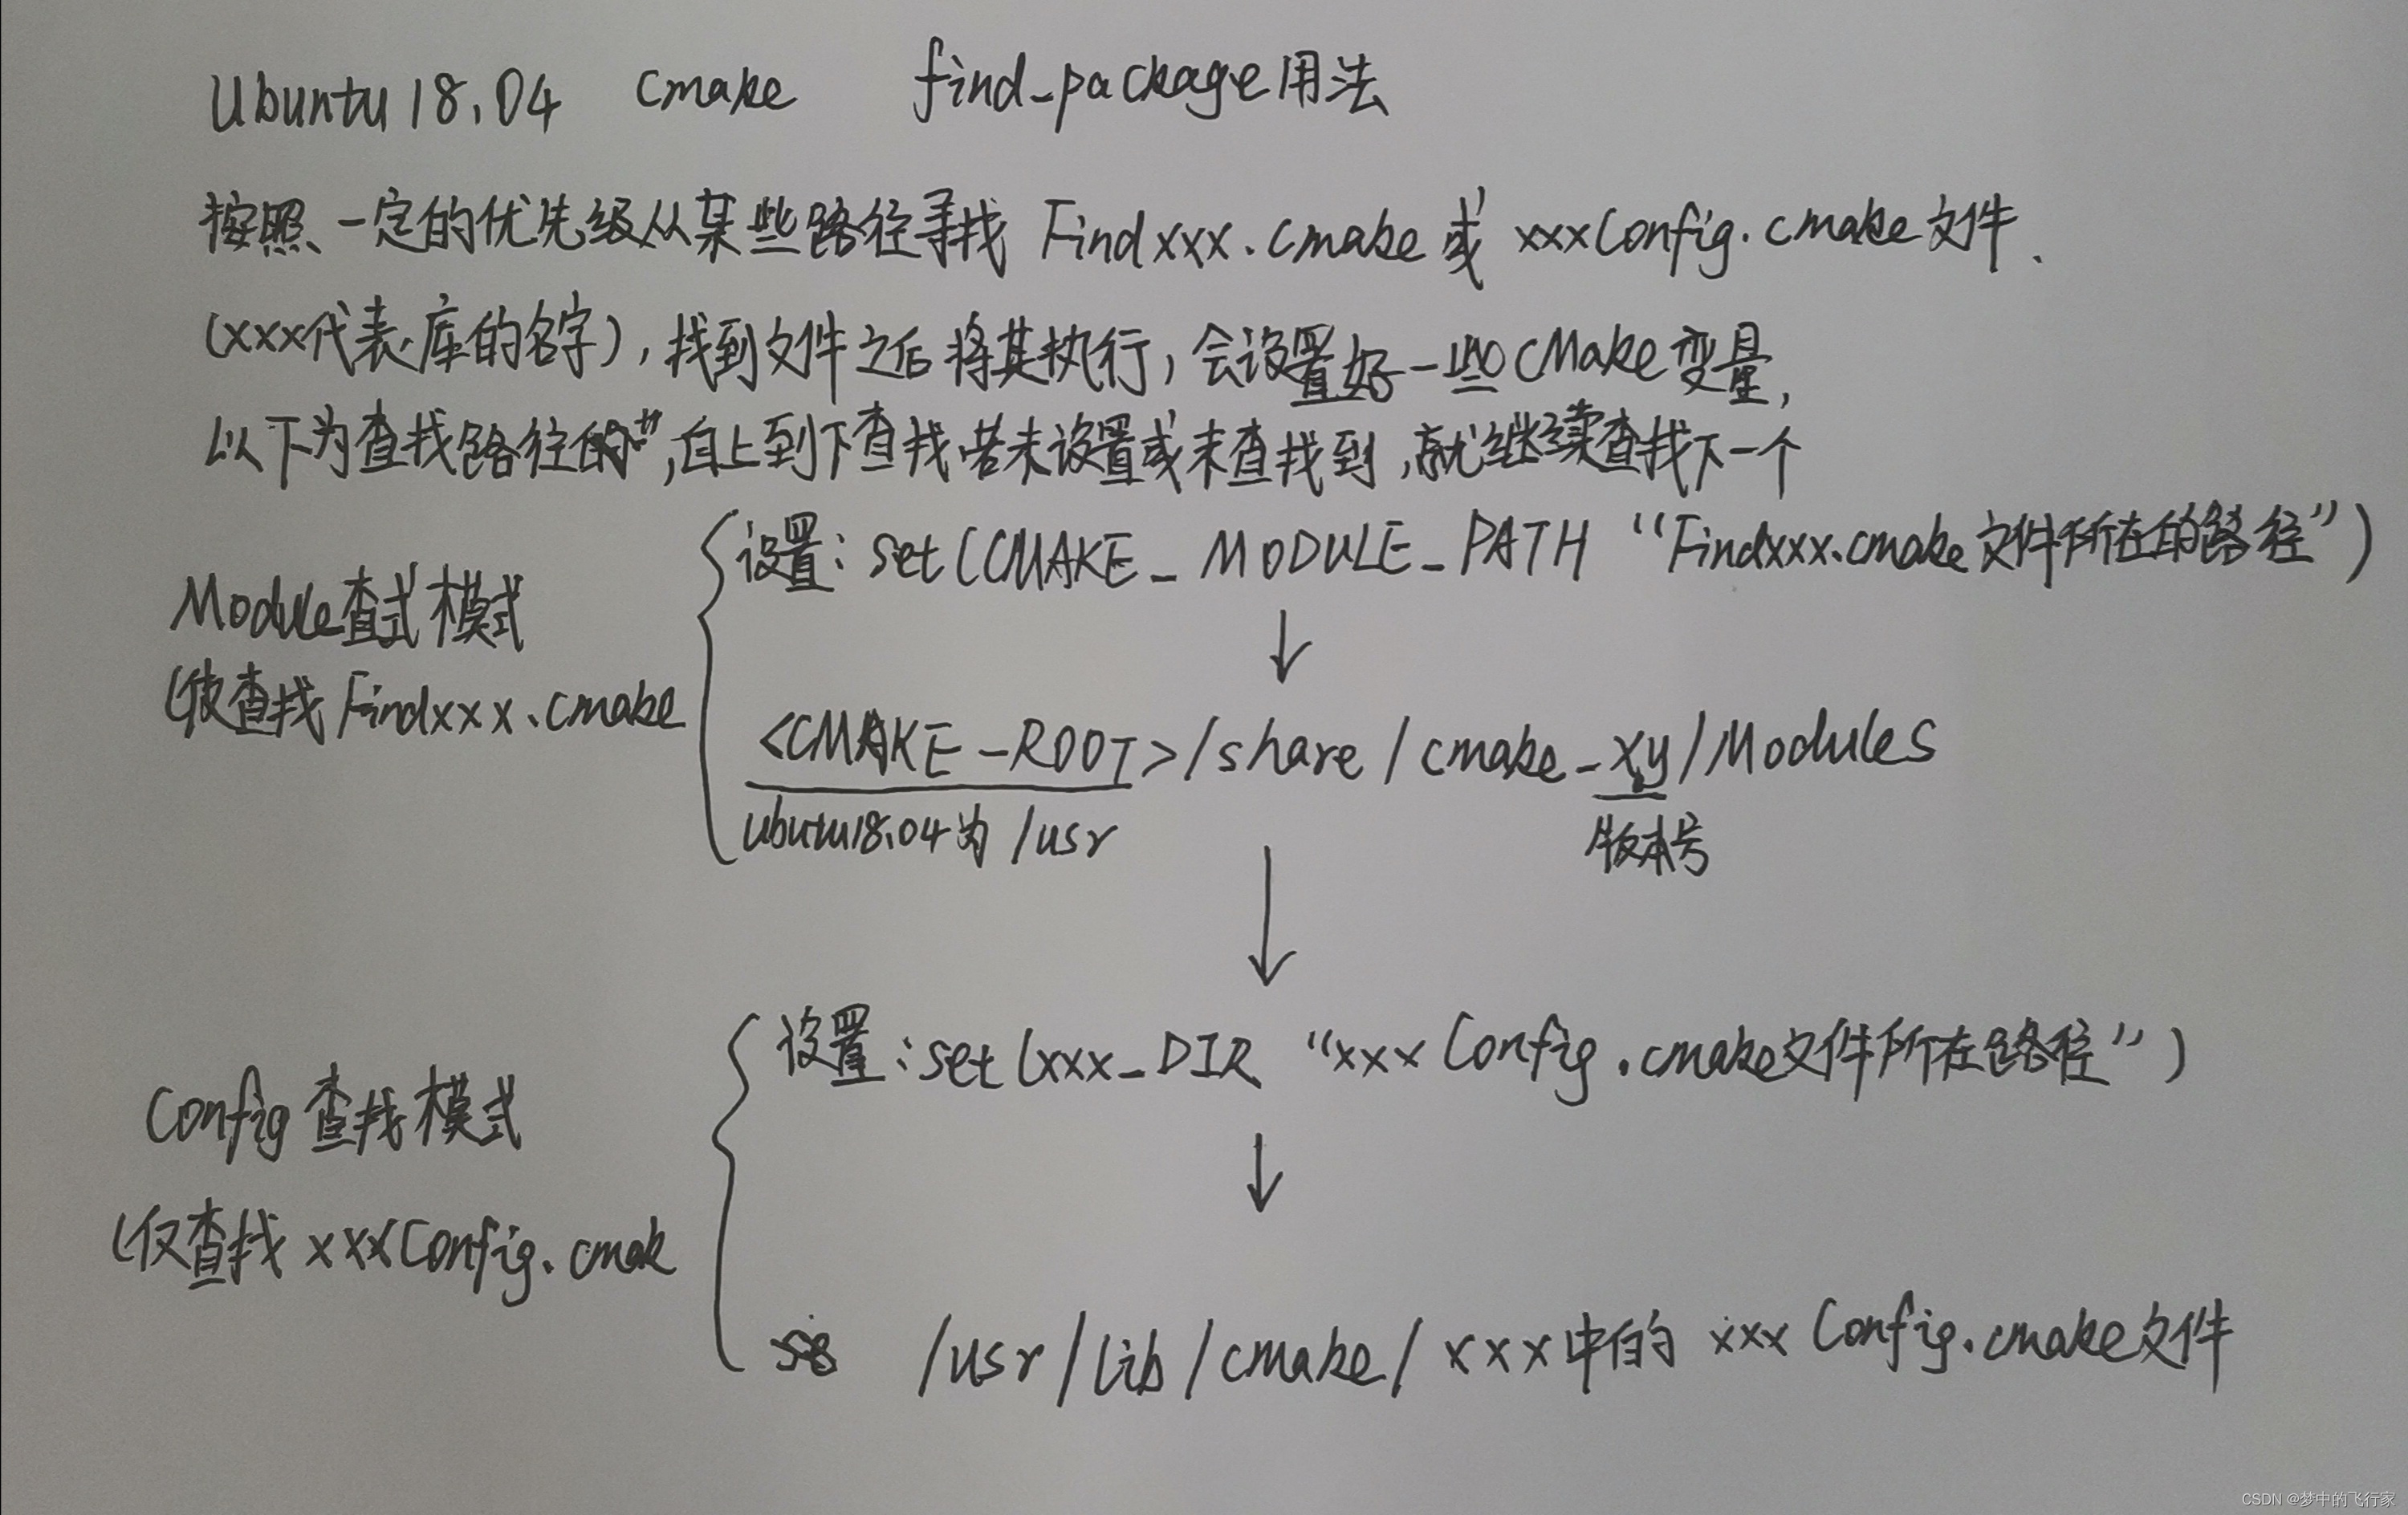 Ubuntu 18.04 cmake find_package用法
按照、一定的优先级从某些路径寻找 Findxxx.cmake 或 xxxConfig.cmake文件、
(xxx代表库的名字), 找到文件之后将其执行, 会设置好一些CMake变量,
以下为查找路径的, 自上到下查找 若未设置或未查找到, 就继续查找下一个
设置: set(CMAKE_MODULE_PATH “Findxxx.cmake文件所在的路径”)
↓
Module查式模式
(仅查找 Findxxx.cmake
<CMAKE-ROOT>/share/cmake-xy/Modules
ubutu18.04为 /usr 版本号
↓
设置: set(xxx_DIR “xxxConfig.cmake文件所在路径”)
↓
Config查找模式
(仅查找 xxxConfig.cmak
/usr/lib/cmake/xxx中的 xxxConfig.cmake文件
CSDN @梦中的飞行家